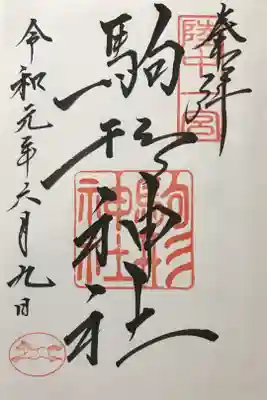 奉拝
陸中一宮
駒形神社
駒形神社
令和元年六月九日